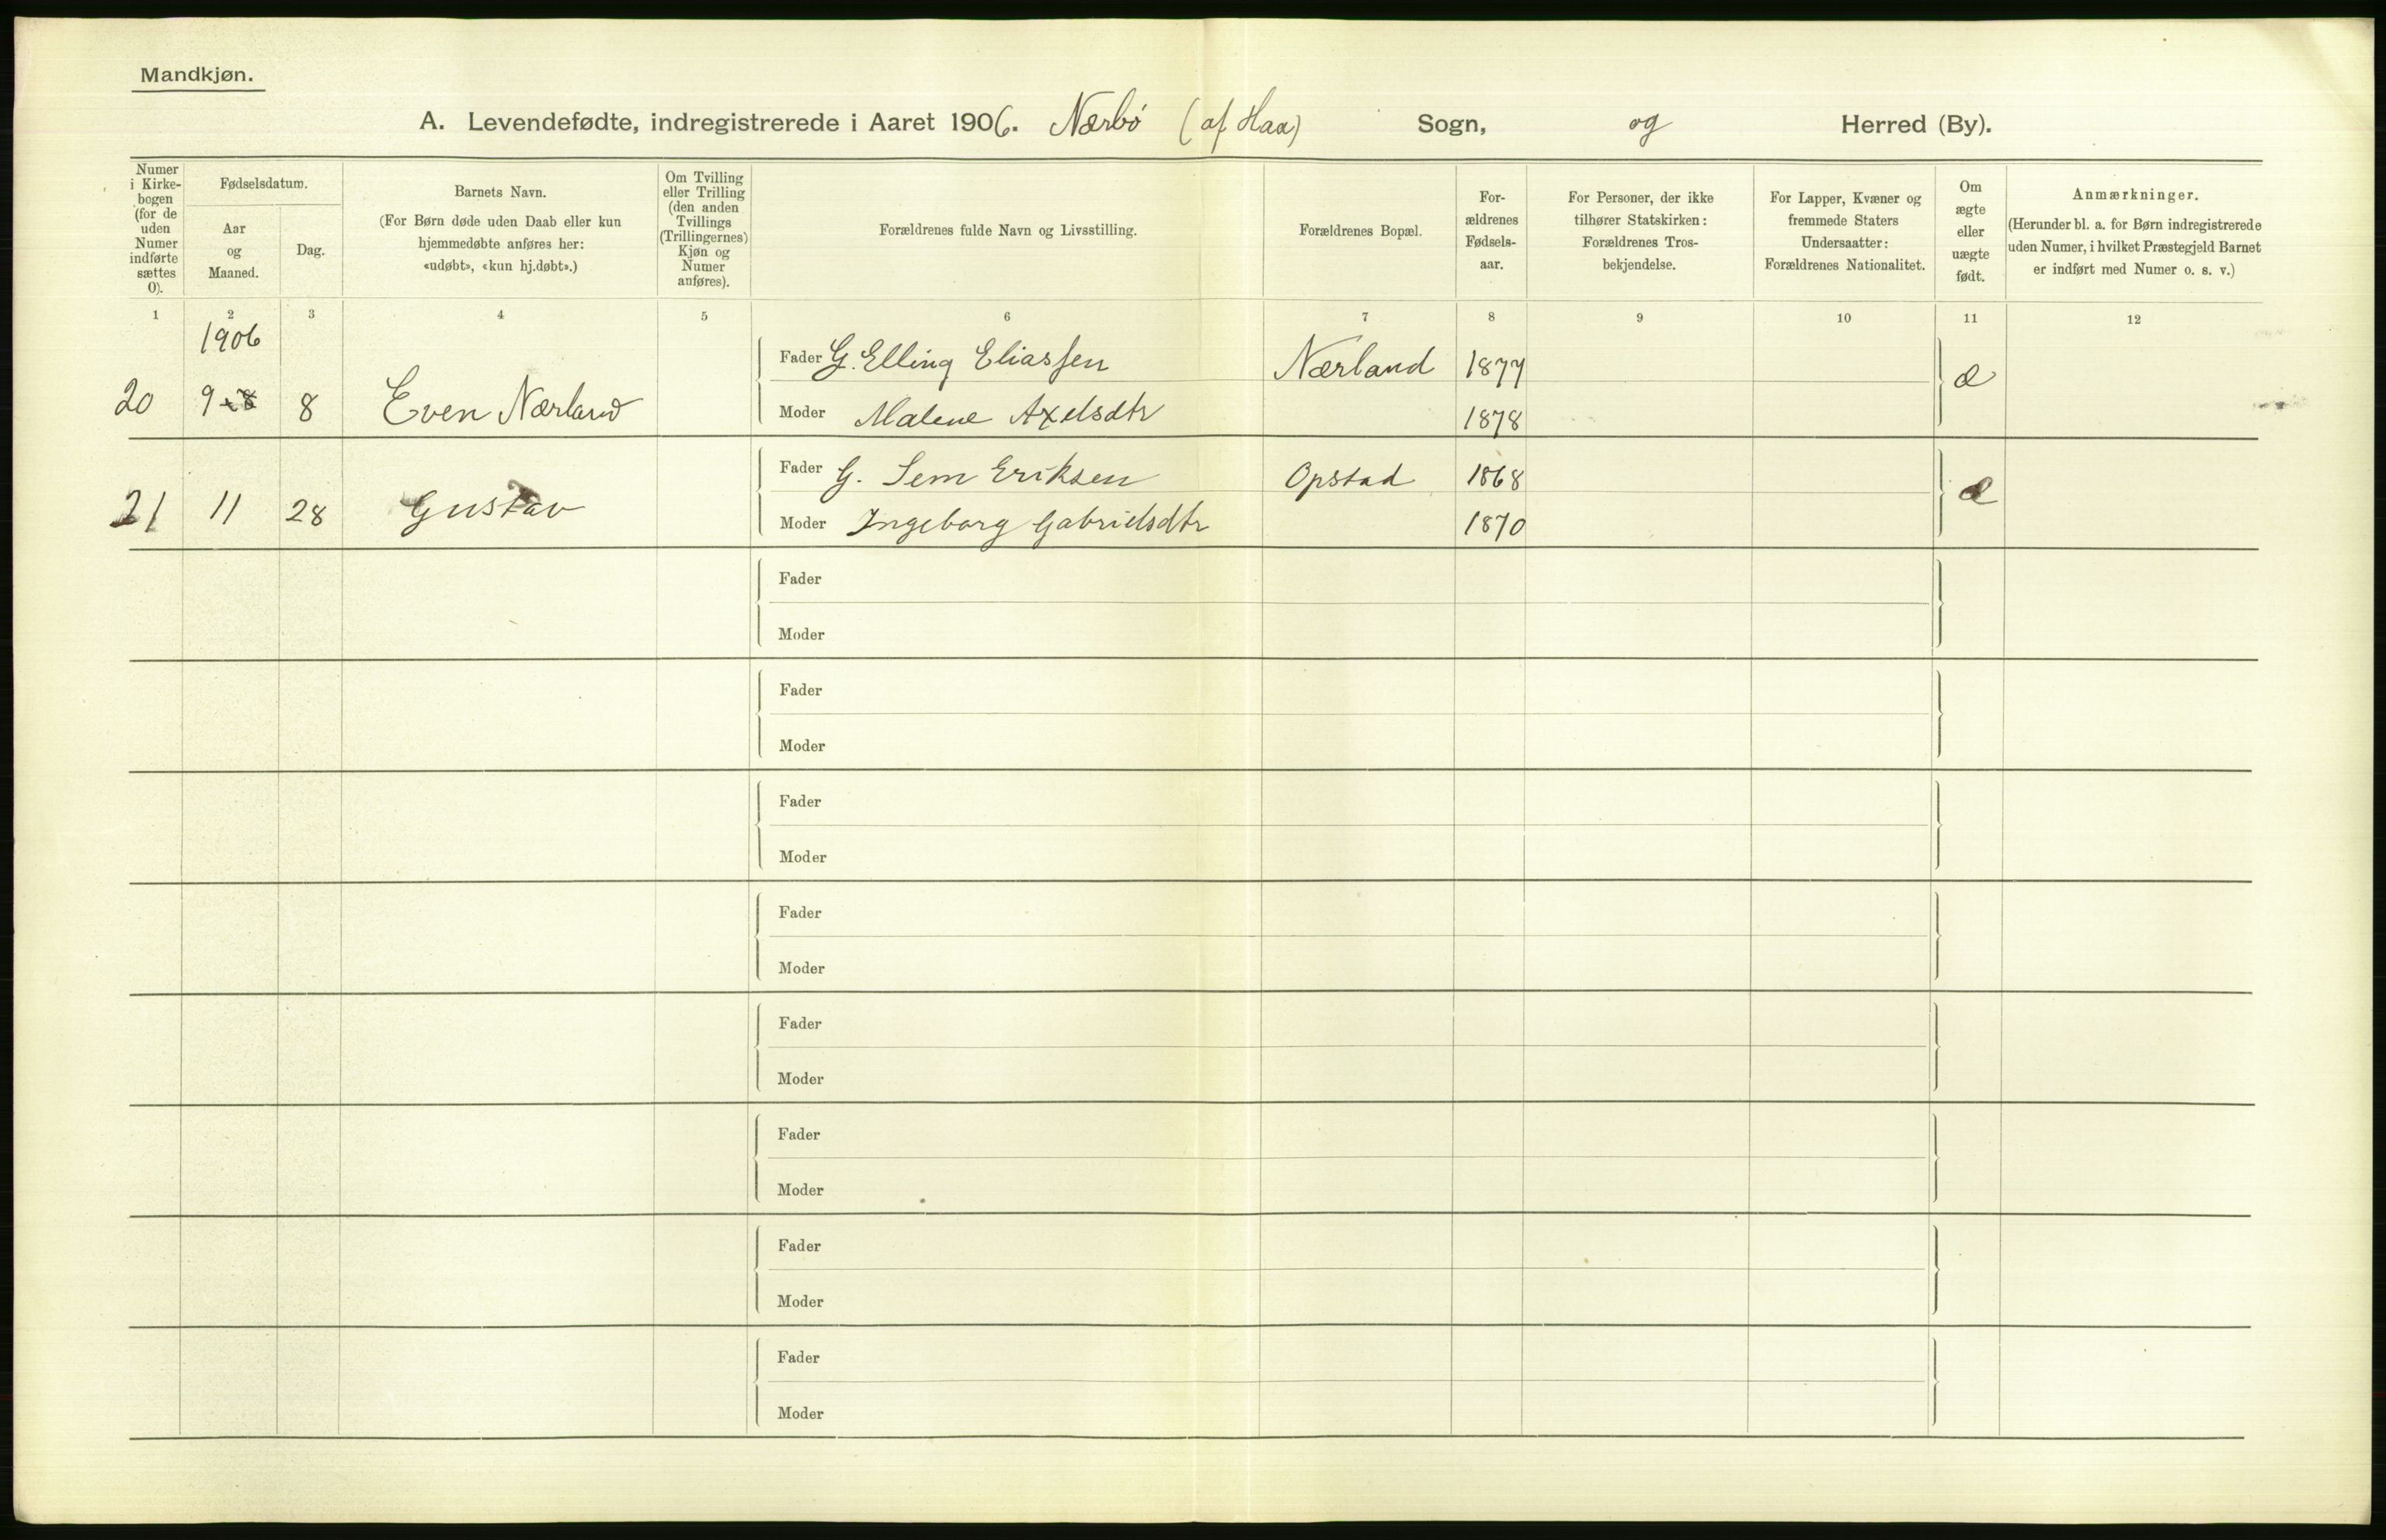 Mandkjøn.
A. Levendefødte, indregistrerede i Aaret 1906. Nærbö (af Haa) Sogn, og Herred (By).
Numer
i Kirke-
bogen
(for de
uden
Numer
indførte
sættes
0).
Fødselsdatum.
Aar
og
Maaned.
Dag.
Barnets Navn.
(For Børn døde uden Daab eller kun
hjemmedøbte anføres her:
«udøbt», «kun hj.døbt».)
Om Tvilling
eller Trilling
(den anden
Tvillings
(Trillingernes)
Kjøn og
Numer
anføres).
Forældrenes fulde Navn og Livsstilling.
Forældrenes Bopæl.
For-
ældrenes
Fødsels-
aar.
For Personer, der ikke
tilhører Statskirken:
Forældrenes Tros-
bekjendelse.
For Lapper, Kvæner og
fremmede Staters
Undersaatter:
Forældrenes Nationalitet.
Om
ægte
eller
uægte
født.
Anmærkninger.
(Herunder bl. a. for Børn indregistrerede
uden Numer, i hvilket Præstegjeld Barnet
er indført med Numer o. s. v.)
1 2 3 4 5 6 7 8 9 10 11 12
1906
Fader G. Elling Eliassen Nærland 1877
20 9 8 Even Nærland æ
Moder Malene Axelsdtr 1878
Fader G. Sem Eriksen Opstad 1868
21 11 28 Gustav æ
Moder Ingeborg Gabrielsdtr 1870
Fader
Moder
Fader
Moder
Fader
Moder
Fader
Moder
Fader
Moder
Fader
Moder
Fader
Moder
Fader
Moder